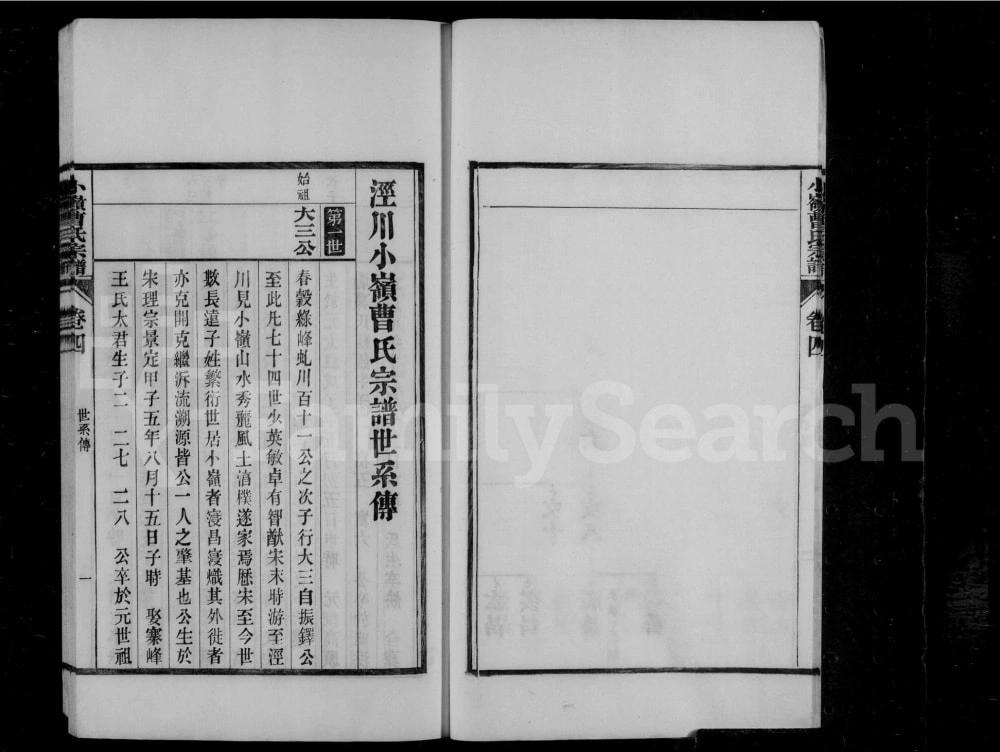 小嶺曹氏宗譜
卷四
涇川小嶺曹氏宗譜世系傳
第一世
始祖
大三公
春穀綠峰虬川百十一公之次子行大三自振鐸公
至此凡七十四世少英敏卓有智猷宋末時游至涇
川見小嶺山水秀麗風土湻樸遂家焉厯宋至今世
數長遠子姓繁衍世居小嶺者寖昌寖熾其外徙者
亦克開克繼泝流溯源皆公一人之肇基也公生於
宋理宗景定甲子五年八月十五日子時 娶寨峰
王氏太君生子二 二七 二八 公卒於元世祖
小嶺曹氏宗譜
卷四
世系傳
一
FamilySearch